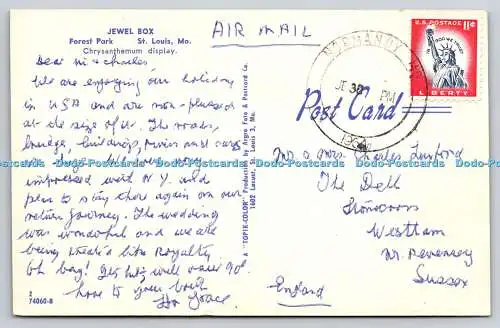 JEWEL BOX
Forest Park St. Louis, Mo.
Chrysanthemum display.
AIR MAIL
Dear & Charles.
We are enjoying our holiday
in USA and are non-plussed
at the size of it. The roads,
bridges, buildings, rivers and cars
impressed with N.Y. and
plan to stay there again on our
return journey. The wedding
was wonderful and we are
being treated like Royalty
Oh boy! well over 90°
love to you both
Grace.
2
74060-B
A "TOPIX-COLOR" Production by Argus Foto & Postcard Co.
1602 Locust, St. Louis 3, Mo.
U.S. POSTAGE 11¢
IN GOD WE TRUST
LIBERTY
NORMANDY
30
PM
Post Card
Mr & Mrs Charles
The Dell
Stonecross
Westham
Nr. Pevensey
Sussex
England
Dodo-Postcards Dodo-Postcards Dodo-Postcards Dodo-Postcards Dodo-Postcards